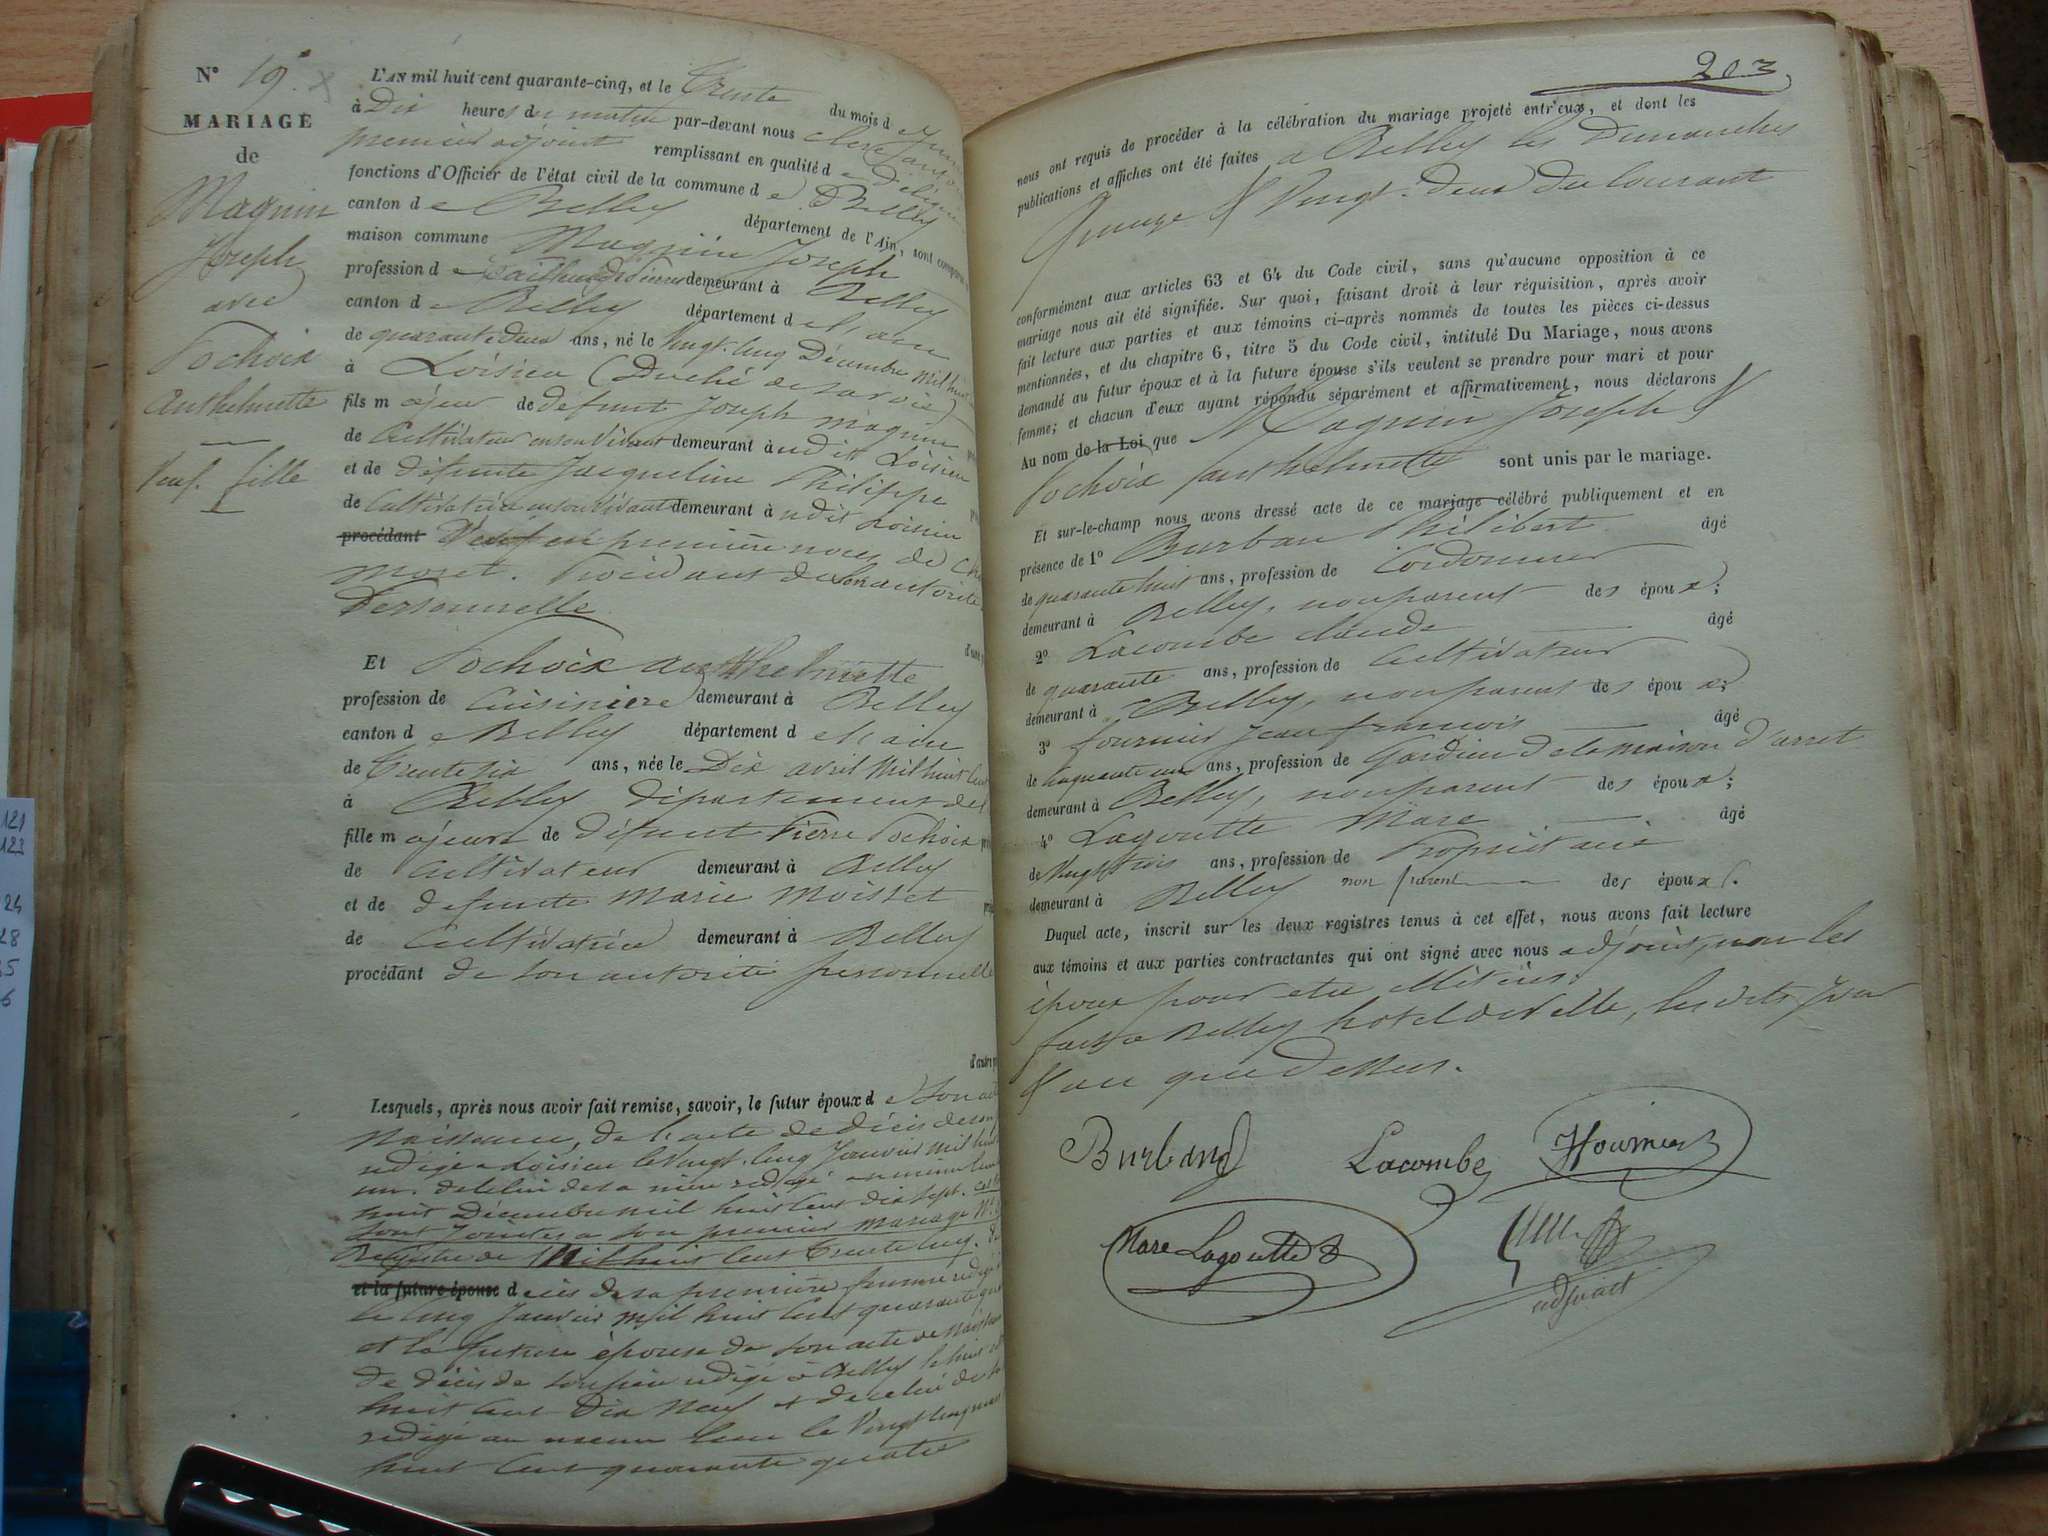 N° 19.
MARIAGE
de
Magnin
Joseph
avec
Pochoix
anthelmette
veuf. fille
L'AN mil huit cent quarante-cinq, et le Trente du mois d
à Dix heures du matin par-devant nous
premier adjoint remplissant en qualité de
fonctions d'Officier de l'état civil de la commune de Belley
canton de Belley département de l'Ain, sont
maison commune Magnin Joseph
profession de demeurant à Belley
canton de Belley département de l'ain
de quarante deux ans, né le vingt-cinq Décembre mil huit
à Loisieu (Duché de savoie)
fils majeur de défunt Joseph magnin
de Cultivateur en son vivant demeurant à udit Loisieu
et de défunte Jacqueline Philippe
de Cultivatrice en son vivant demeurant à udit Loisieu
procédant Veuf en première noces de
moret. Procédant de son autorité
Personnelle
Et Pochoix anthelmette
profession de Cuisiniere demeurant à Belley
canton de Belley département de l'ain
de Trente six ans, née le Dix avril mil huit cent
à Belley département de l
fille majeure de défunt Pierre Pochoix
de Cultivateur demeurant à Belley
et de défunte Marie Moisset
de Cultivatrice demeurant à Belley
procédant de son autorité personnelle
Lesquels, après nous avoir fait remise, savoir, le futur époux de son
Naissance, de l'acte de décès de son
rédigé à Loisieu le vingt-cinq Janvier mil huit
un. de celui de sa mère rédigé au même lieu
huit Décembre mil huit cent dix sept.
sont Jointes a son premier mariage N°
Registre de Mil huit cent Trente cinq.
et la future épouse décès de sa première femme rédigé
le cinq Janvier mil huit cent quarante
et la future épouse de son acte de Naissance
de décès de son père rédigé à Belley le huit
huit cent Dix Neuf et de celui de sa
rédigé au meme lieu le Vingt cinq
huit cent quarante quatre
203
nous ont requis de procéder à la célébration du mariage projeté entr'eux, et dont les
publications et affiches ont été faites à Belley les Dimanches
quinze & vingt-deux du Courant
conformément aux articles 63 et 64 du Code civil, sans qu'aucune opposition à ce
mariage nous ait été signifiée. Sur quoi, faisant droit à leur réquisition, après avoir
fait lecture aux parties et aux témoins ci-après nommés de toutes les pièces ci-dessus
mentionnées, et du chapitre 6, titre 5 du Code civil, intitulé Du Mariage, nous avons
demandé au futur époux et à la future épouse s'ils veulent se prendre pour mari et pour
femme; et chacun d'eux ayant répondu séparément et affirmativement, nous déclarons
Au nom de la Loi que Magnin Joseph &
Pochoix anthelmette sont unis par le mariage.
Et sur-le-champ nous avons dressé acte de ce mariage célébré publiquement et en
présence de 1° Burban Philibert âgé
de quarante huit ans, profession de Cordonnier
demeurant à Belley, non parent des époux;
2° Lacombe claude âgé
de quarante ans, profession de Cultivateur
demeurant à Belley, non parent des époux;
3° fournier Jean françois âgé
de cinquante un ans, profession de Gardien de la maison d'arret
demeurant à Belley, non parent des époux;
4° Lagoutte Marc âgé
de vingt trois ans, profession de Propriétaire
demeurant à Belley non parent des époux.
Duquel acte, inscrit sur les deux registres tenus à cet effet, nous avons fait lecture
aux témoins et aux parties contractantes qui ont signé avec nous adjoint, non les
époux pour etre illitérés.
fait à Belley hotel de ville, les dits jour
& an que dessus.
Burband Lacombe Hournier
Marc Lagoutte
adjoint
121
123
24
28
25
6